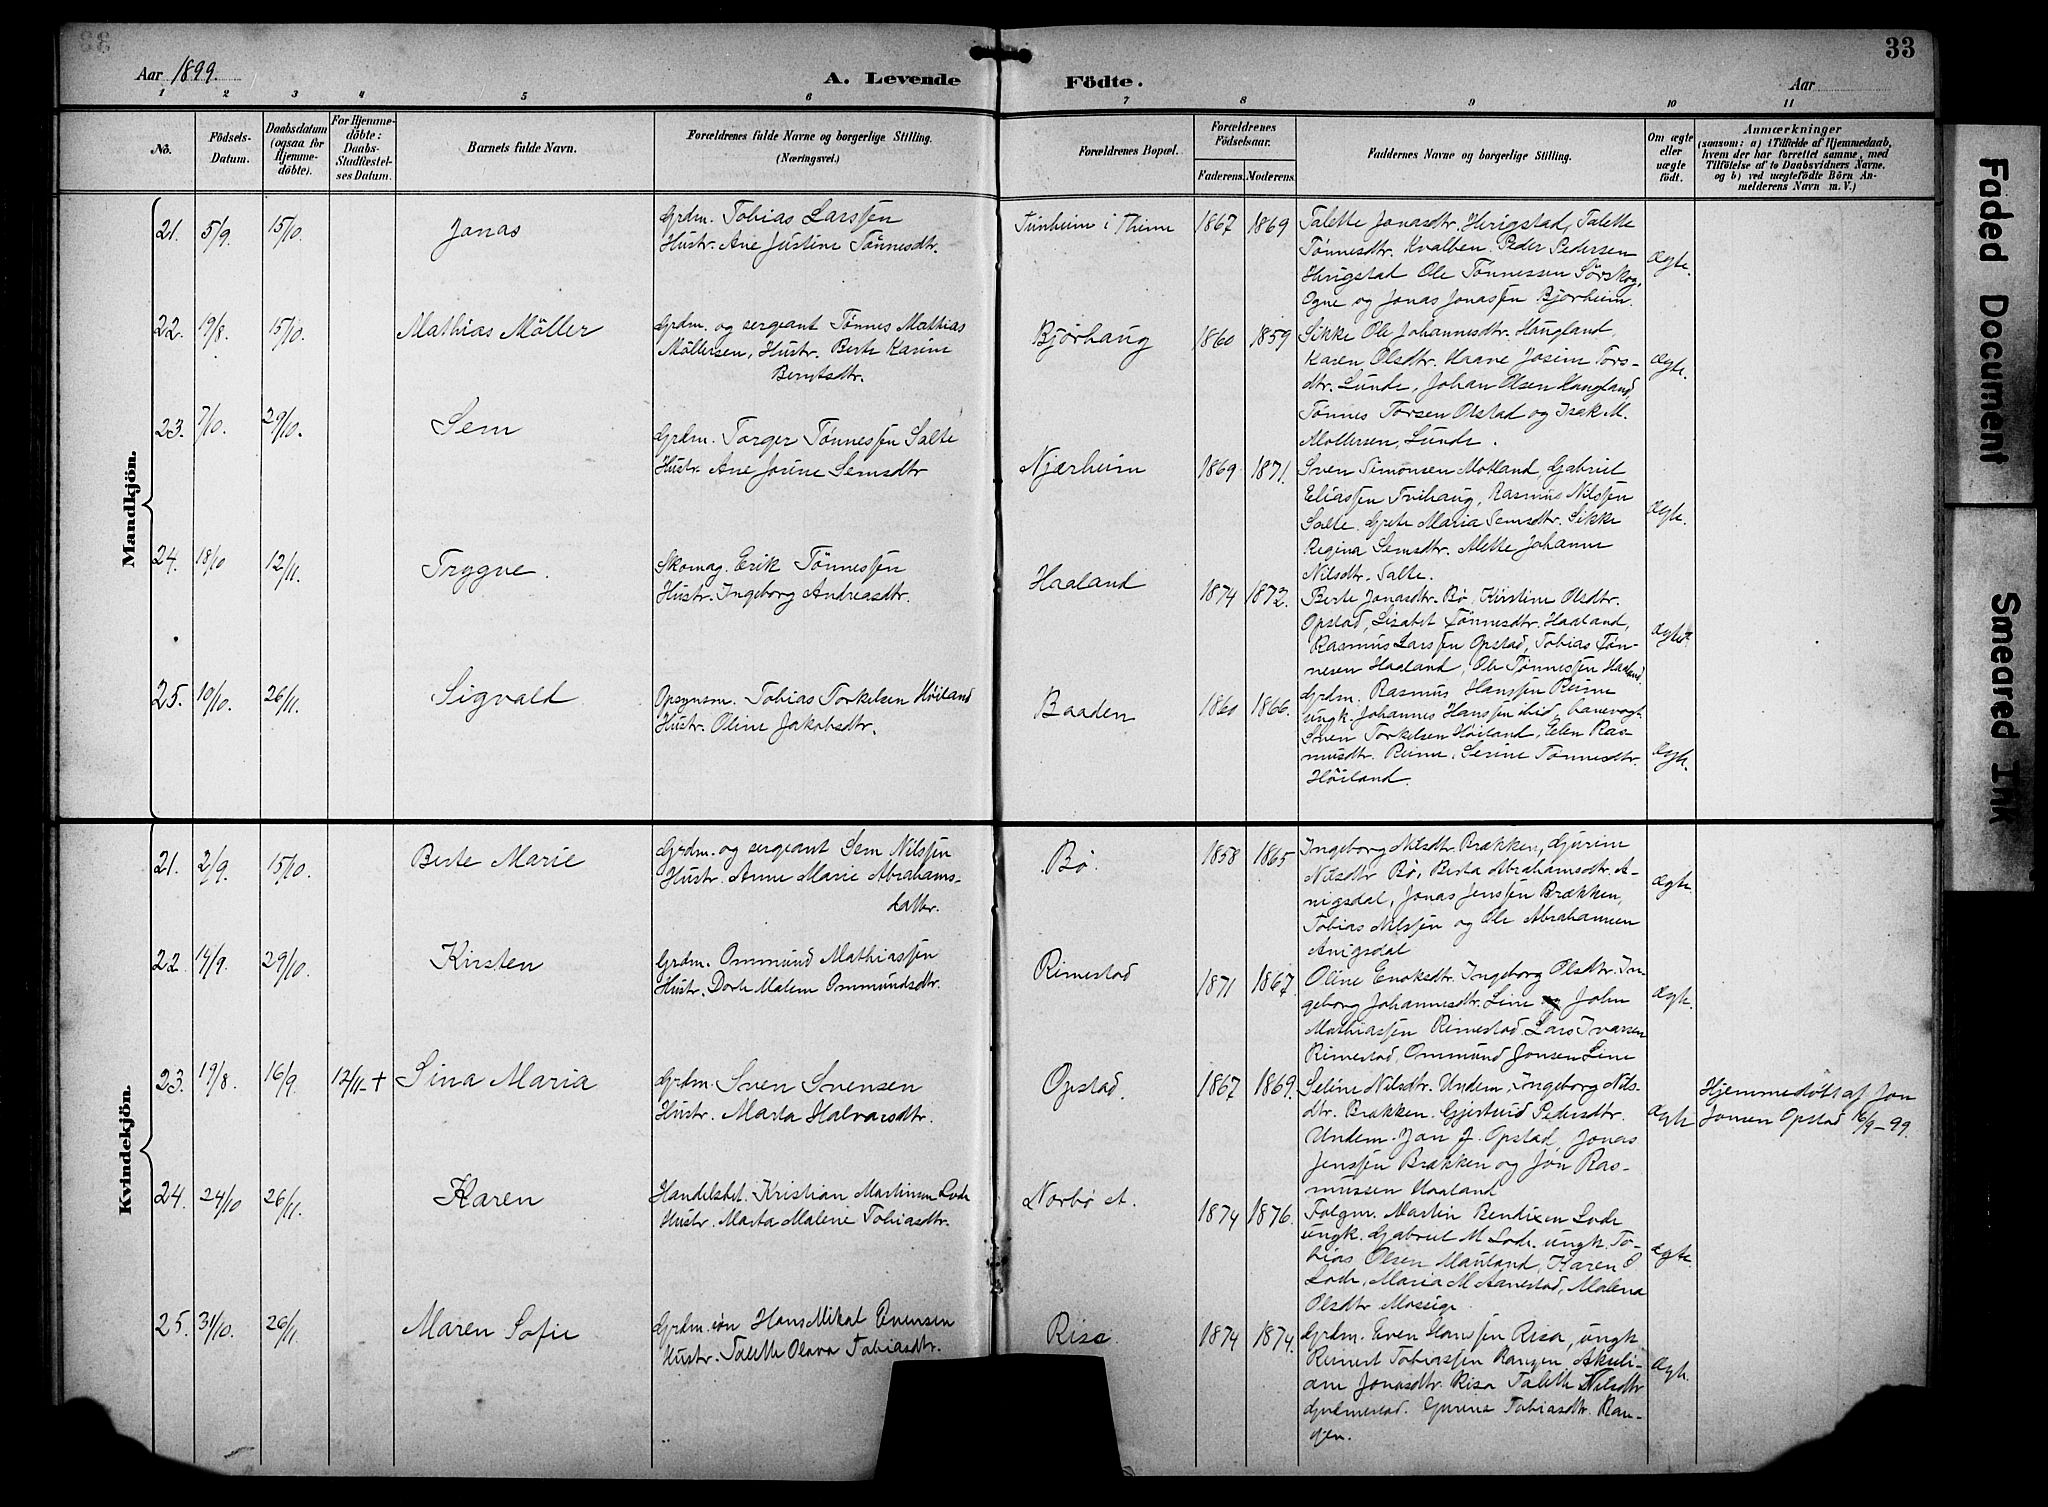 33
Aar 1899.
A. Levende Födte.
Aar
1 2 3 4 5 6 7 8 9 10 11
Nö.
Födsels-Datum.
Daabsdatum (ogsaa for Hjemmedöbte).
For Hjemmedöbte: Daabs-Stadfæstelses Datum.
Barnets fulde Navn.
Forældrenes fulde Navne og borgerlige Stilling. (Næringsvei.)
Forældrenes Bopæl.
Forældrenes Födselsaar.
Faderens. Moderens.
Faddernes Navne og borgerlige Stilling.
Om ægte eller uægte födt.
Anmærkninger
(saasom: a) i Tilfælde af Hjemmedaab, hvem der har forrettet samme, med Tilföielse af to Daabsvidners Navne. og b) ved uægtefödte Börn Anmelderens Navn m. V.)
Mandkjön.
21. 5/9. 15/10. Jonas
Grdm. Tobias Larssen
Hustr. Ane Justine Tönnesdtr.
Tunheim i Thime 1867 1869
Talette Jonasdtr. Herigstad, Talette
Tönnesdtr. Kvalben. Peder Pedersen
Herigstad Ole Tönnessen Sörskog,
Ogne og Jonas Jonassen Bjorheim.
Ægte.
22. 19/8. 15/10. Mathias Möller
Grdm. og sergeant Tönnes Mathias
Möllersen, Hustr. Berte Karine
Berntsdtr.
Bjørhaug 1860 1859
Sikke Ole Johannesdtr. Haugland,
Karen Olsdtr. Haave Josine Tors-
dtr. Lunde, Johan Olsen Haugland,
Tönnes Torsen Olstad og Isak M.
Møllersen, Lunde.
Ægte.
23. 7/10. 29/10. Sem
Grdm. Torger Tönnessen Salte
Hustr. Ane Josine Semsdtr
Njærheim 1869 1871.
Sven Simonsen Motland, Gabriel
Eliassen Tvihaug, Rasmus Nilssen
Salte. Grete Maria Semsdtr. Sikke
Regina Semsdtr. Alette Johanne
Nilsdtr. Salte.
Ægte.
24. 18/10 12/11. Trygve.
Skomag. Erik Tönnessen
Hustr. Ingeborg Andreasdtr.
Haaland 1874 1872.
Berte Jonasdtr. Bø, Kirstine Olsdtr.
Opstad, Lisabet Tönnesdtr. Haaland,
Rasmus Larssen Opstad, Tobias Tön-
nesen Haaland, Ole Tönnessen Haaland.
Ægte
25. 10/10. 26/11. Sigvald
Opsynsm. Tobias Torkelsen Höiland
Hustr. Oline Jakobsdtr.
Baaden 1860 1866.
Grdm. Rasmus Hanssen Reime
ungk. Johannes Hanssen ibid, banevogt.
Sven Torkelsen Höiland, Elen Ras-
musdtr. Reime, Serine Tönnesdtr.
Höiland.
Ægte.
Kvindekjön.
21. 2/9. 15/10. Berte Marie
Grdm. og sergeant Sem Nilssen
Hustr. Anne Marie Abrahams-
datter.
Bø. 1858 1865
Ingeborg Nilsdtr. Brækken, Gurine
Nilsdtr Bø, Berta Abrahamsdtr. A-
nigsdal, Jonas Jenssen Brækken,
Tobias Nilssen og Ole Abrahamsen
Anigsdal
Ægte.
22. 14/9. 29/10. Kirsten
Grdm. Ommund Mathiassen
Hustr. Dorte Malene Ommundsdtr.
Rimestad 1871 1867.
Oline Enoksdtr. Ingeborg Olsdtr. In-
geborg Johannesdtr. Line og John
Mathiassen Rimestad Lars Ivarsen
Rimestad, Ommund Jonsen Line
Ægte.
23. 19/8. 16/9. 12/11. + Sina Maria
Grdm. Sven Svensen
Hustr. Marta Halvarsdtr.
Opstad. 1867 1869.
Seline Nilsdtr. Undem, Ingeborg Nils-
dtr. Brækken. Gjertrud Pedersdtr.
Undem. Jan J. Opstad, Jonas
Jenssen Brækken og Jon Ras-
mussen Haaland
Ægte
Hjemmedöbt af Jon
Jonsen Opstad 16/9-99.
24. 24/10 26/11. Karen
Handelsbet. Kristian Martinsen Lode
Hustr. Marta Malene Tobiasdtr.
Norbø A. 1874 1876.
Folgm. Martin Bendixen Lode
ungk. Gabriel M Lode. ungk. To-
bias Olsen Mauland, Karen S
Lode, Maria M Aanestad, Malena
Olsdtr Mossige.
Ægte.
25. 31/10. 26/11. Maren Sofie
Grdm. sön Hans Mikal Evensen
Hustr. Talette Olava Tobiasdtr.
Risa. 1874 1874.
Grdm. Even Hanssen Risa, ungk
Reinert Tobiassen Rangen, Akseli-
ane Jonasdtr. Risa Talette Nilsdtr
Grudmestad. Gurine Tobiasdtr. Ran-
gen.
Ægte.
Faded Document
Smeared Ink